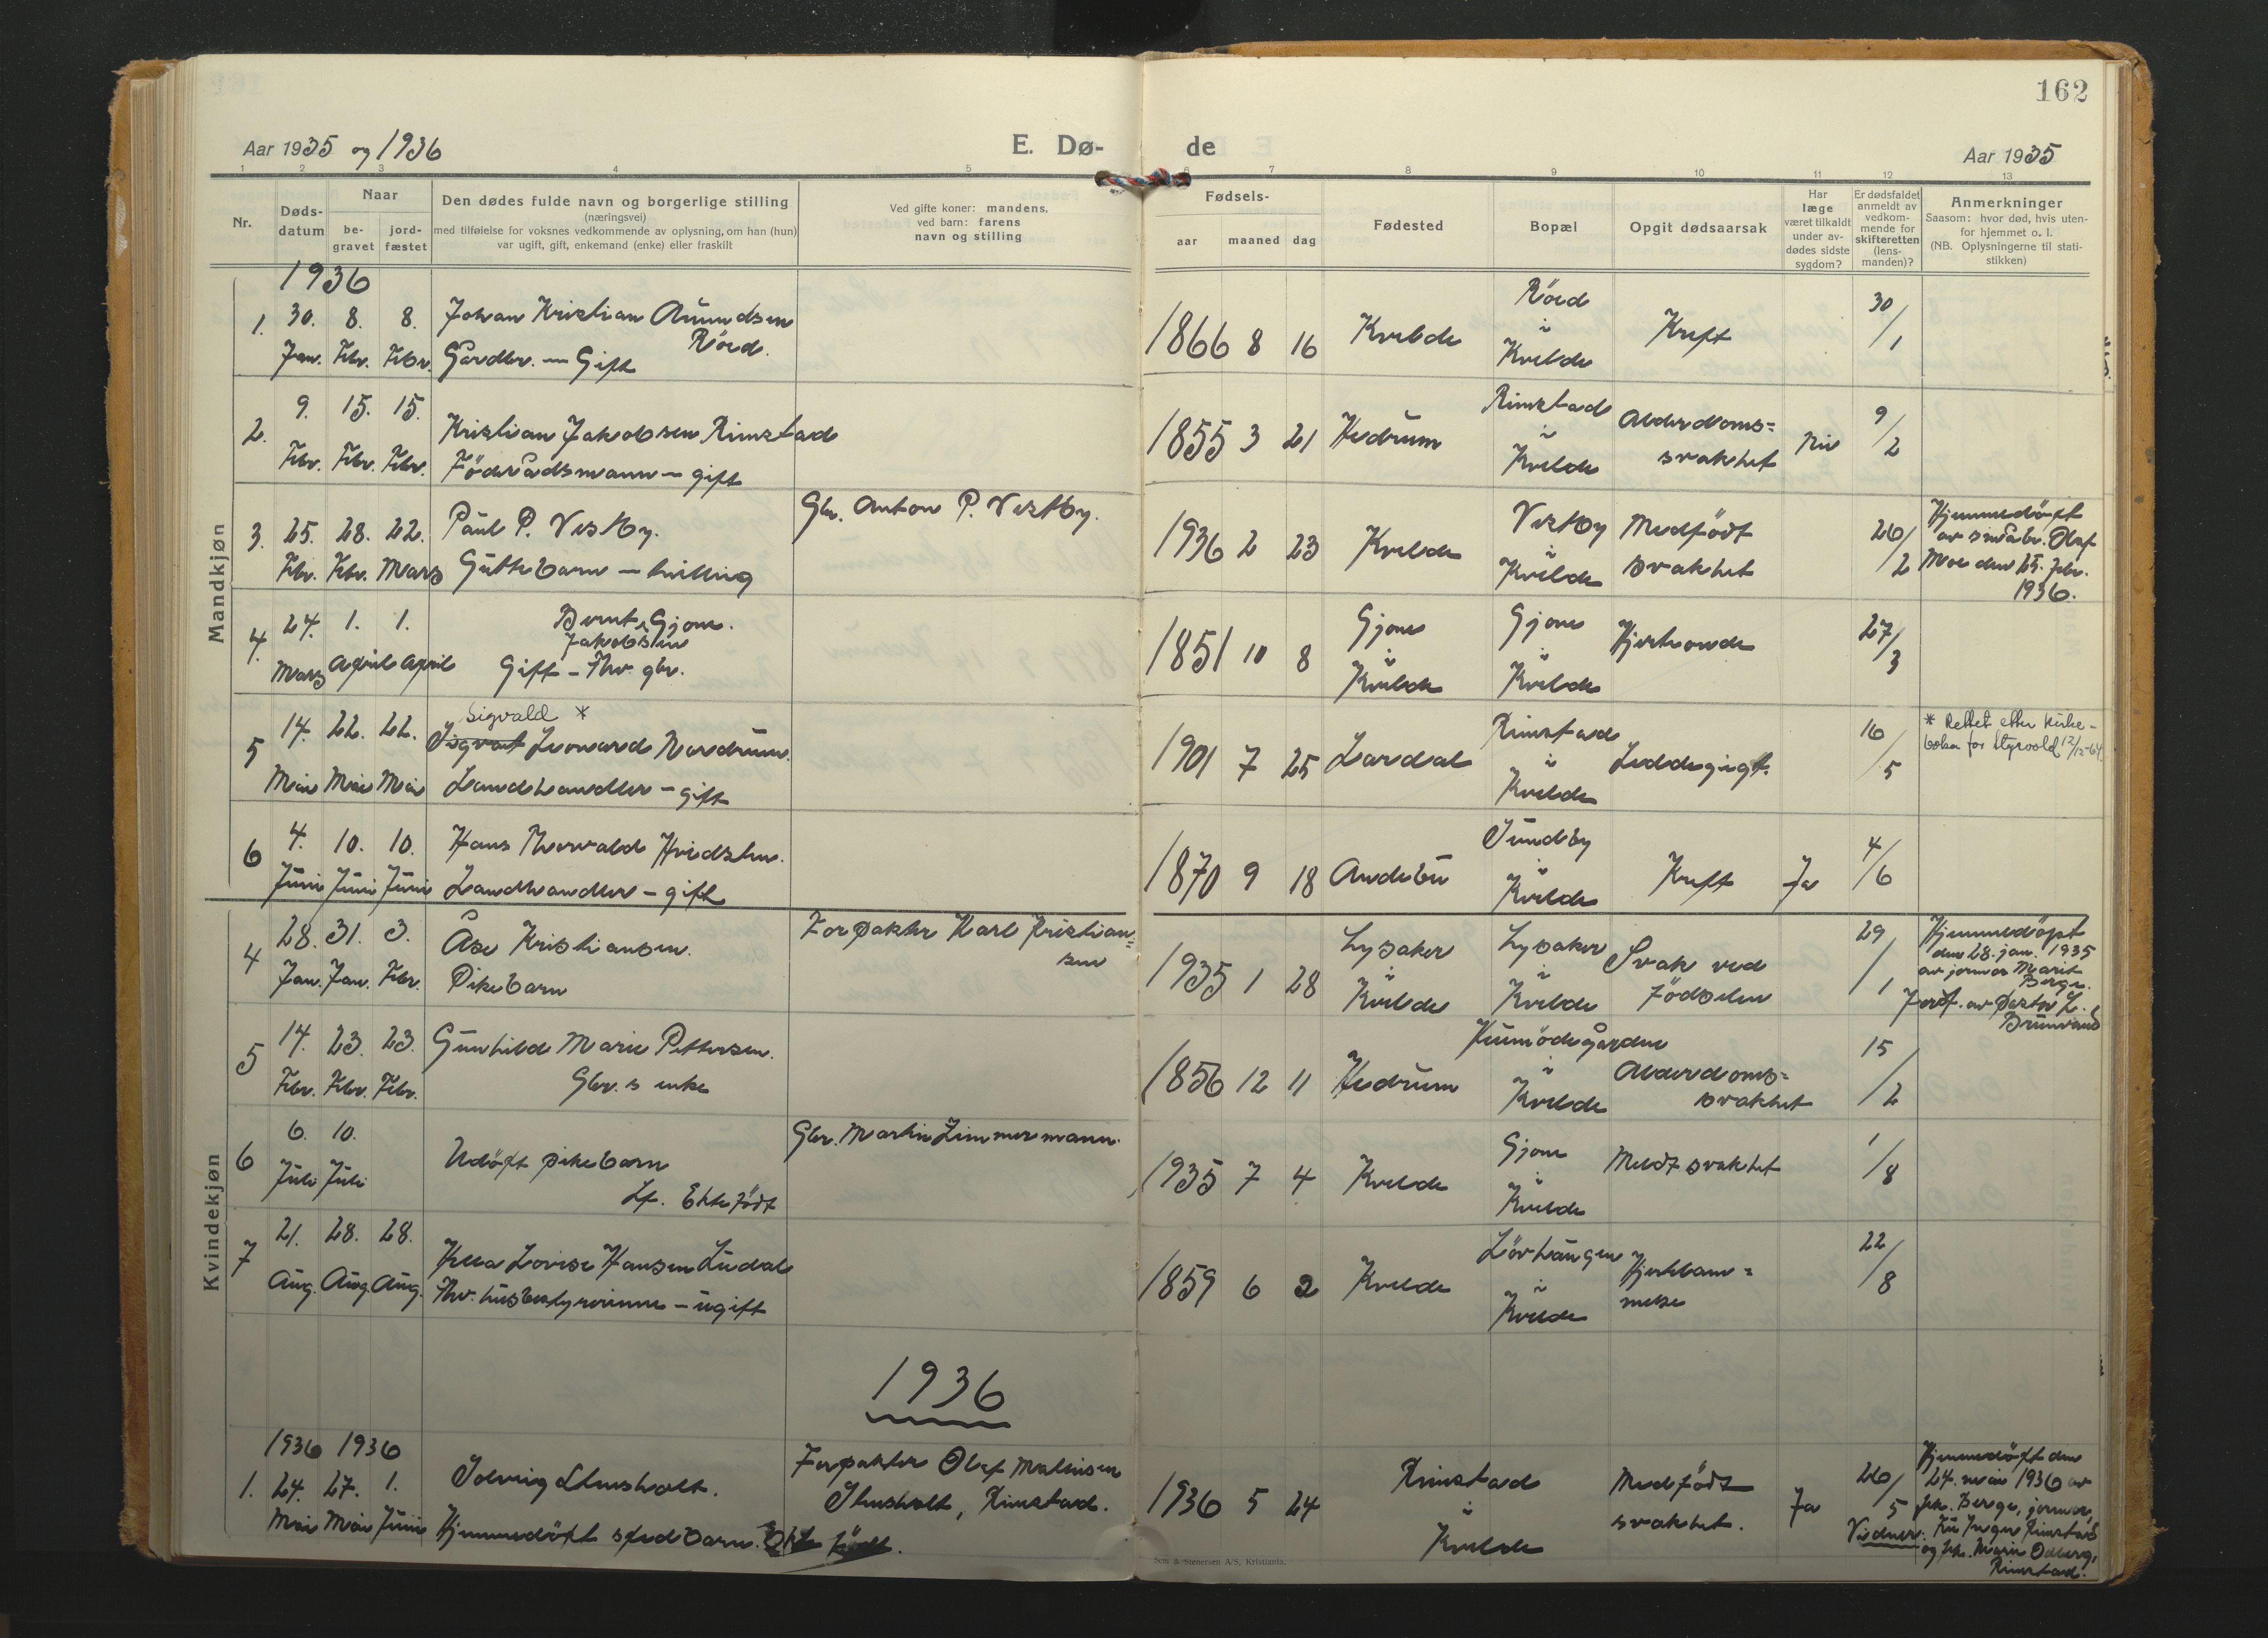 162
Aar 1935 og 1936
E. Dø-
de
Aar 1935
1 2 3 4 5 6 7 8 9 10 11 12 13
Nr.
Døds-
datum
Naar
be-
gravet
jord-
fæstet
Den dødes fulde navn og borgerlige stilling
(næringsvei)
med tilføielse for voksnes vedkommende av oplysning, om han (hun)
var ugift, gift, enkemand (enke) eller fraskilt
Ved gifte koner: mandens,
ved barn: farens
navn og stilling
Fødsels-
aar maaned dag
Fødested
Bopæl
Opgit dødsaarsak
Har
læge
været tilkaldt
under av-
dødes sidste
sygdom?
Er dødsfaldet
anmeldt av
vedkom-
mende for
skifteretten
(lens-
manden)?
Anmerkninger
Saasom: hvor død, hvis uten-
for hjemmet o. l.
(NB. Oplysningerne til stati-
stikken)
Mandkjøn
1936
1. 30. 8. 8. Johan Kristian Amundsen
Röed.
Jan. Febr. Febr. Gardbr. — Gift
1866 8 16 Kvelde
Röed
i
Kvelde
Kreft
30/1
2. 9. 15. 15. Kristian Jakobsen Rimstad
Febr. Febr. Febr. Föderådsmann — gift
1855 3 21 Hedrum
Rimstad
i
Kvelde
Alderdoms=
svakhet
Nei
9/2
3. 25. 28. 22. Paul P. Vestby.
Febr. Febr. Mars Guttebarn — tvilling
Gbr. Anton P. Vestby.
1936 2 23 Kvelde
Vestby
i
Kvelde
Medfödt
svakhet
26/2
Hjemmedöpt
av småbr. Olaf
Moe den 25. febr.
1936.
4. 24. 1. 1. Bernt Gjone.
Jakobsen
Mars April April Gift — Fhv. gbr.
1851 10 8
Gjone
i
Kvelde
Gjone
i
Kvelde
Hjerteonde
27/3
5 14. 22. 22. Sigvald *
Sigvart Leonard Nordrum.
Mai Mai Mai Landhandler — gift
1901 7 25 Lardal
Rimstad
i
Kvelde
Leddegigt.
16/5
* Rettet etter kirke-
boka for Styrvold 12/12-64.
6 4. 10. 10. Hans Thorvald Hvidsten.
Juni Juni Juni Landhandler — gift
1870 9 18 Andebu
Sundby
i
Kvelde
Kreft
Ja
4/6
Kvindekjøn
4 28. 31. 3. Åse Kristiansen.
Jan. Jan. Febr. Pikebarn
Forpakter Karl Kristian=
sen
1935 1 28
Lysaker
i
Kvelde
Lysaker
i
Kvelde
Svak ved
födselen
29/1
Hjemmedöpt
den 28. jan. 1935
av jormor Marit
Berge.
Jordf. av pastor L.
Brunvand
5 14. 23. 23. Gunhild Marie Pettersen.
Febr. Febr. Febr. Gbr.s enke
1856 12 11 Hedrum
i
Kvelde
Alderdoms=
svakhet
15/2
6 6. 10. Udöpt pikebarn
Juli Juli
Lf. Ektefödt
Gbr. Martin Zimmermann.
1935 7 4 Kvelde
Gjone
i
Kvelde
Medf svakhet
1/8
7 21. 28. 28. Lovise Hansen Ludal
Aug. Aug. Aug. Fhv. husbestyrerinne — ugift
1859 6 2 Kvelde
i
Kvelde
Hjertelam=
melse
22/8
1936
1936 1936
1. 24. 27. 1. Solveig Stensholt.
Mai Mai Juni Hjemmedöpt spedbarn. Ekte födt.
Forpakter Olaf Mathisen
Stensholt, Rimstad.
1936 5 24
Rimstad
i
Kvelde
Medfödt
svakhet.
Ja
26/5
Hjemmedöpt den
24. mai 1936 av
frk. Berge, jormor,
Vidner: Fru Inger Rimstad
og frk. Marie Odberg,
Rimstad.
Sem & Stenersen A/S, Kristiania.